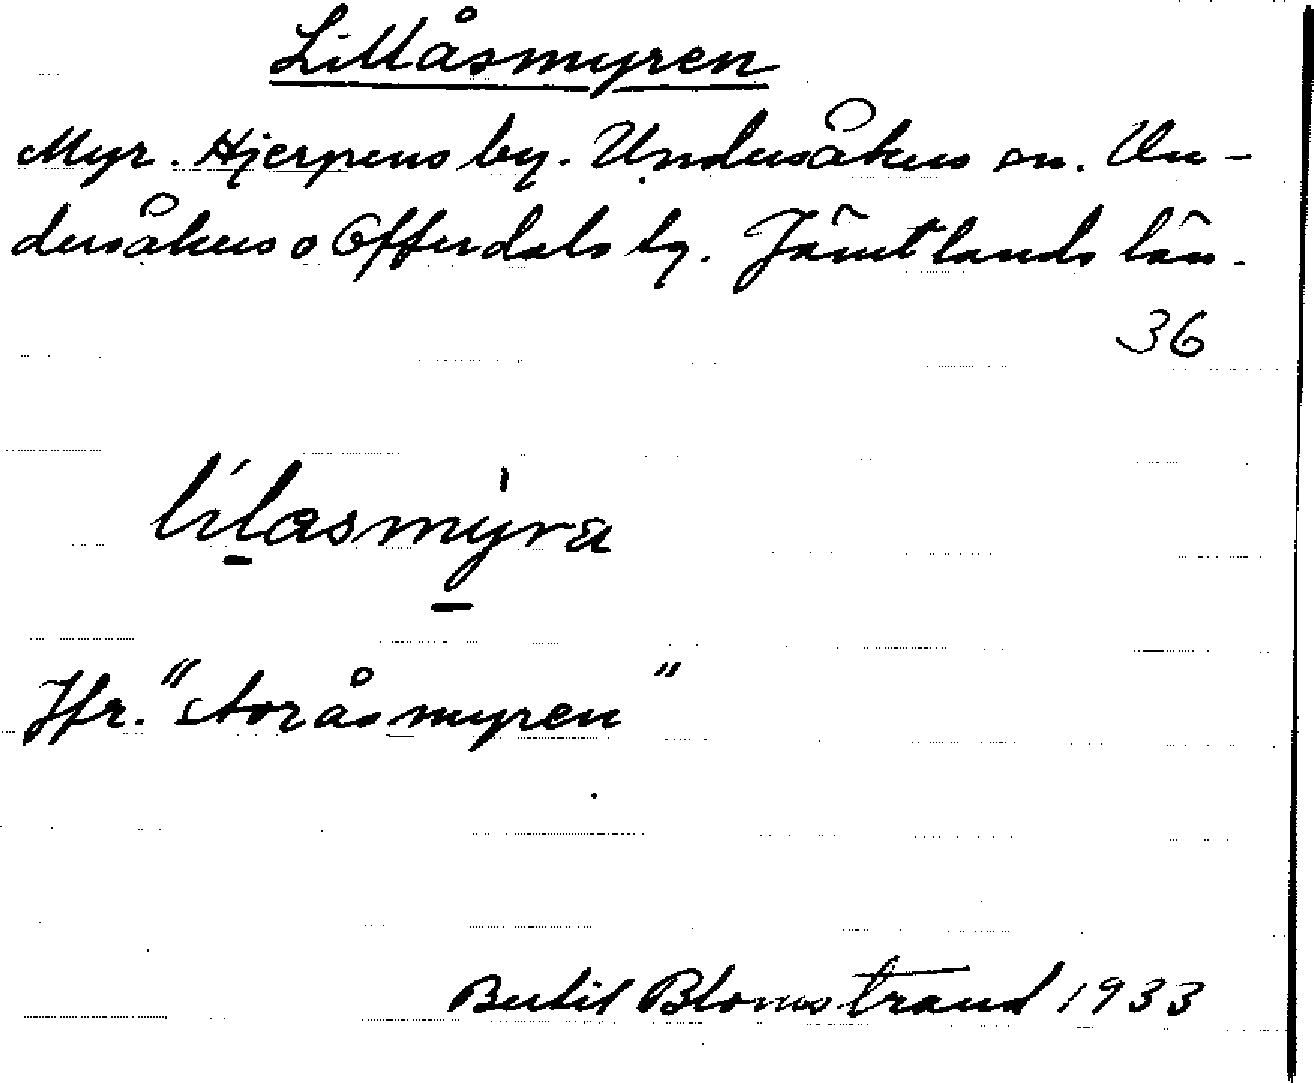 Lillåsmyren
Myr. Hjerpens by. Undersåkers sn. Un-
dersåkers o Offerdals tg. Jämtlands län.
36
lilasmyra
Jfr. "Storåsmyren"
Bertil Blomstrand 1933